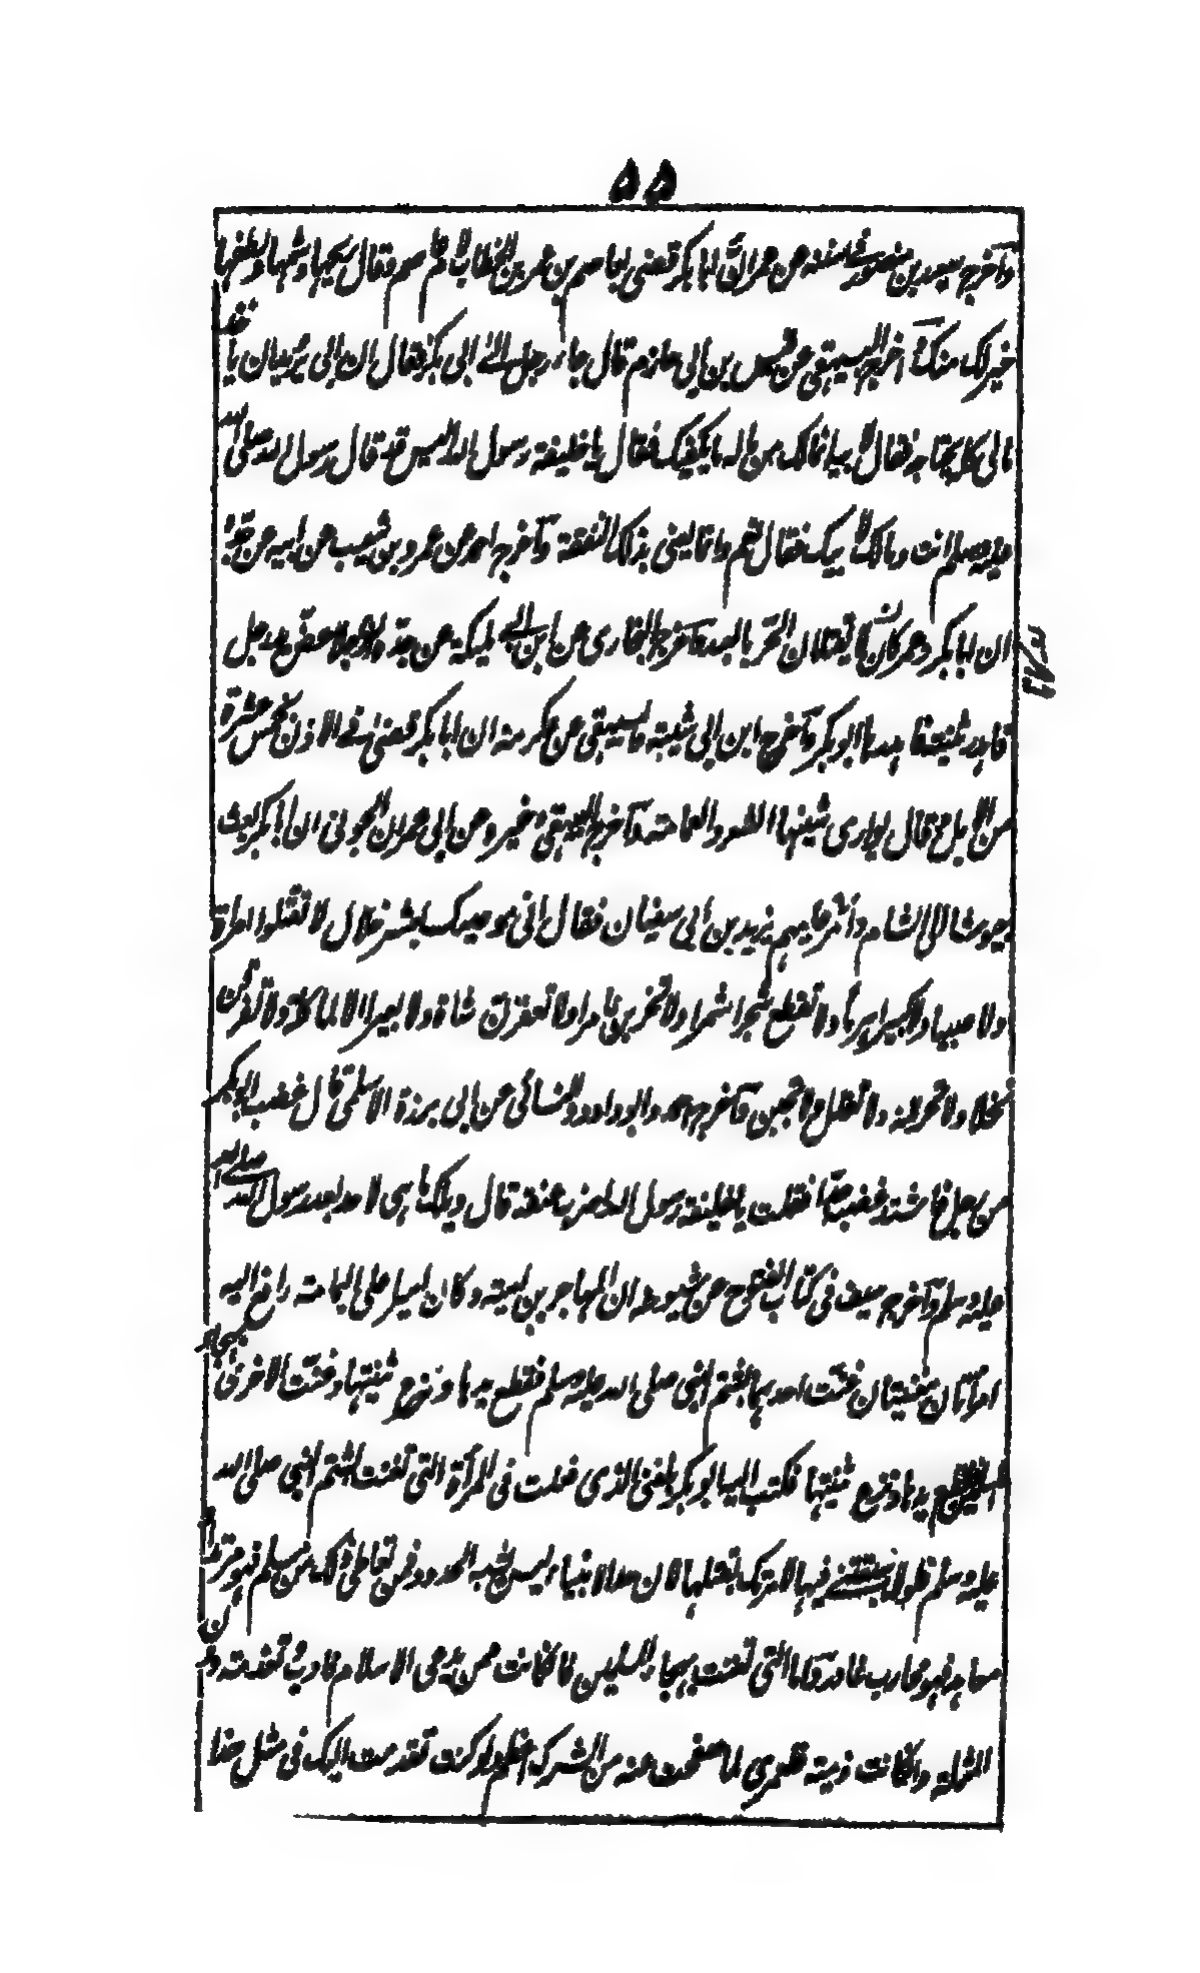 ۵۵
وآخرج سعيد بن منصور في سننه عن عمر ان ابا بكر قضى بعاصم بن عمر بن الخطاب لام عاصم وقال ريحها وشمها ولطفها
خير لك منك وآخرج البيهقي عن قيس بن ابي حازم قال جاء رجل الى ابي بكر فقال ان ابي يريد ان ياخذ
مالي كله يجتاحه فقال لابيه انما لك من ماله ما يكفيك فقال يا خليفة رسول الله اليس قد قال رسول الله صلى الله
عليه وسلم انت ومالك لابيك فقال نعم وانما يعني بذلك النفقة وآخرج احمد عن عمرو بن شعيب عن ابيه عن جده
ان ابا بكر وعمر كانا لا يقتلان الحر بالعبد وآخرج البخاري عن ابن ابي مليكة عن جده ان رجلا عض يد رجل
فاندر ثنيته فاهدرها ابو بكر وآخرج ابن ابي شيبة والبيهقي عن عكرمة ان ابا بكر قضى في الاذن بخمس عشرة
من الابل وقال يواري شينها الشعر والعمامة وآخرج البيهقي وغيره عن ابي عمران الجوني ان ابا بكر بعث
جيوشا الى الشام وامر عليهم يزيد بن ابي سفيان فقال اني موصيك بعشر خلال لا تقتلوا امراة
ولا صبيا ولا كبيرا هرما ولا تقطع شجرا مثمرا ولا تخربن عامرا ولا تعقرن شاة ولا بعيرا الا لماكلة ولا تفرقن
نخلا ولا تحرقنه ولا تغلل ولا تجبن وآخرج احمد وابو داود والنسائي عن ابي برزة الاسلمي قال غضب ابو بكر
من رجل فاشتد غضبه جدا فقلت يا خليفة رسول الله اضرب عنقه قال ويلك ما هي لاحد بعد رسول الله صلى الله
عليه وسلم وآخرج سيف في كتاب الفتوح عن شيوخه ان المهاجر بن امية وكان اميرا على اليمامة رفع اليه
امراتان مغنيتان غنت احدهما بشتم النبي صلى الله عليه وسلم فقطع يدها ونزع ثنيتها وغنت الاخرى بهجاء
المسلمين فقطع يدها ونزع ثنيتها فكتب اليه ابو بكر بلغني الذي فعلت في المرأة التي تغنت بشتم النبي صلى الله
عليه وسلم فلولا ما سبقتني فيها لامرتك بقتلها لان حد الانبياء ليس يشبه الحدود فمن تعاطى ذلك من مسلم فهو مرتد او
معاهد فهو محارب غادر واما التي تغنت بهجاء المسلمين فان كانت ممن يدعي الاسلام فادب وتقدمة دون
المثلة وان كانت ذمية فلعمري لما صفحت عنه من الشرك اعظم ولو كنت تقدمت اليك في مثل هذا